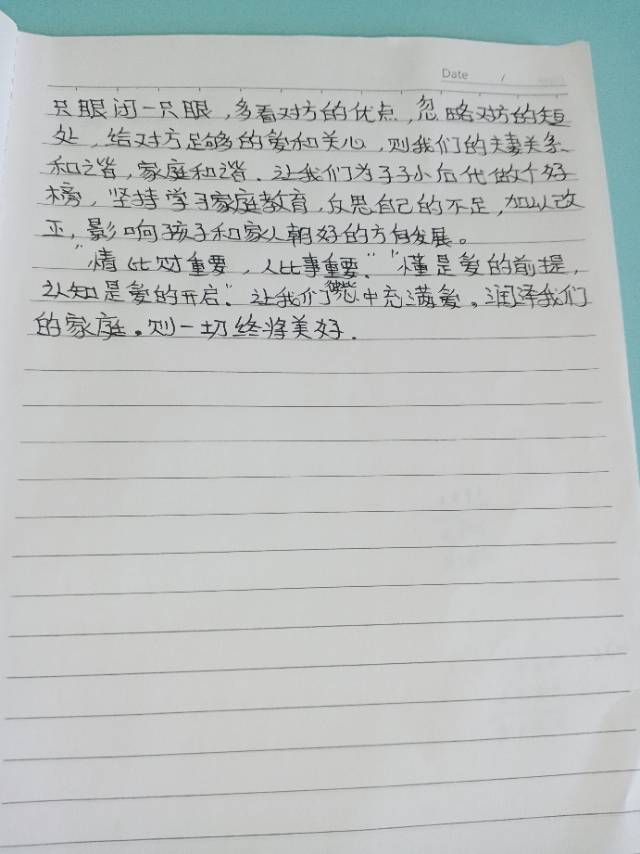 Date /
只眼闭一只眼，多看对方的优点，忽略对方的短
处，给对方足够的爱和关心，则我们的夫妻关系
和谐，家庭和谐．让我们为子子小后代做个好
榜，坚持学习家庭教育，反思自己的不足，加以改
正，影响孩子和家人朝好的方向发展。
"情比对重要，人比事重要．""懂是爱的前提，
认知是爱的开启"．让我们心中充满爱，润泽我们
的家庭。则一切终将美好．